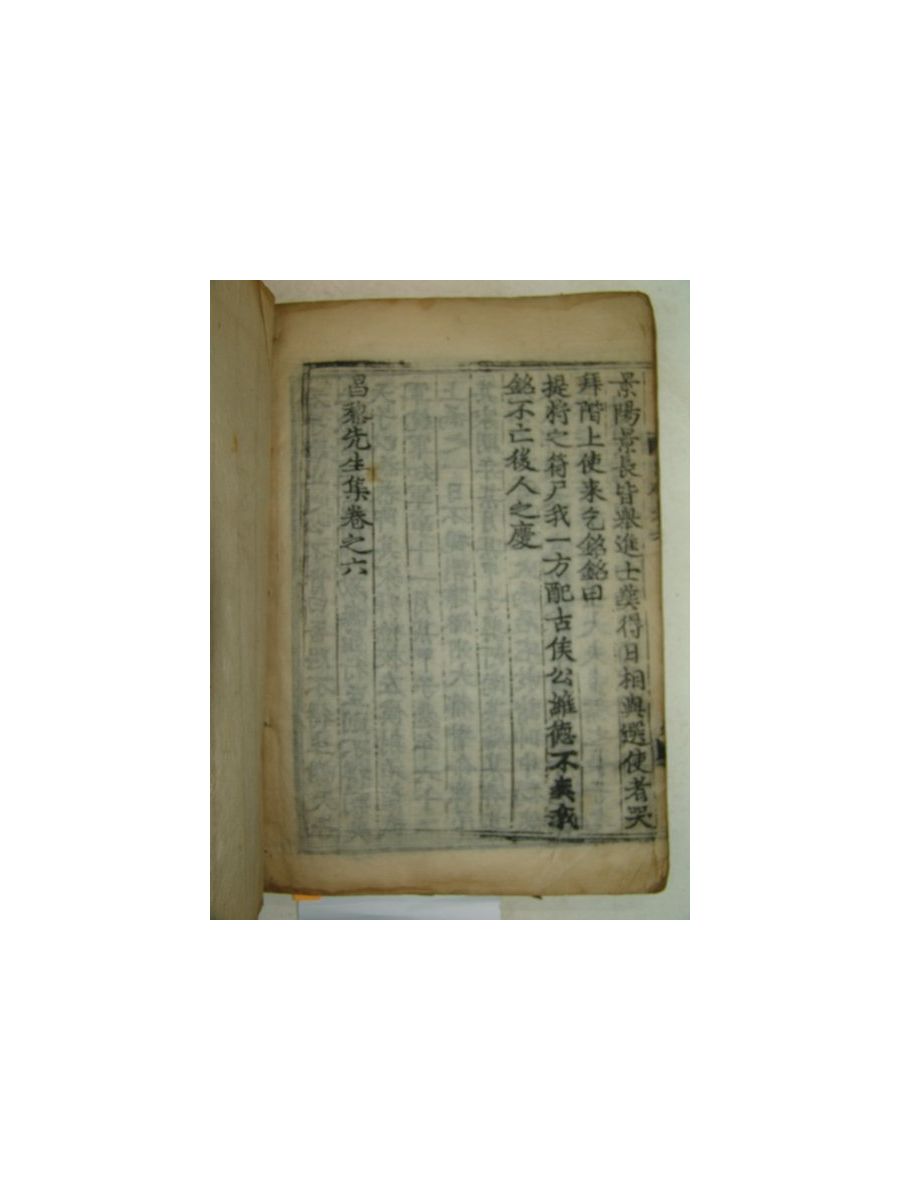 景陽景長皆擧進士葬得日相與遣使者哭
拜階上使来乞銘銘曰
提将之符尸我一方配古侯公維德不爽我
銘不亡後人之慶
昌黎先生集卷之六